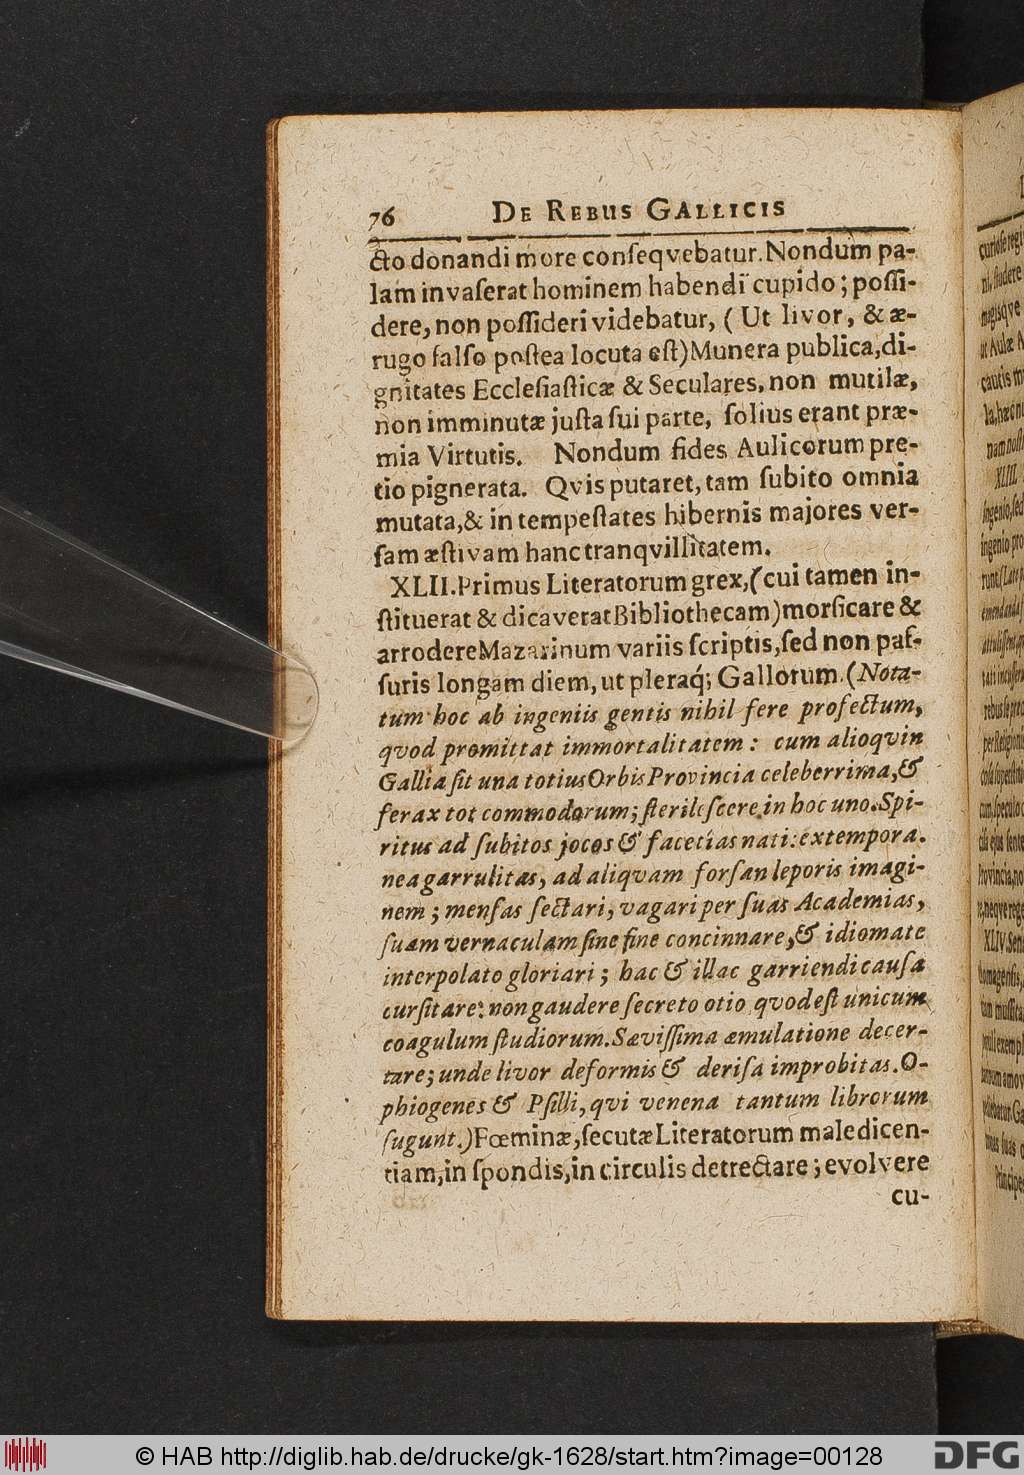 76 DE REBUS GALLICIS
cto donandi more conſeqvebatur. Nondum pa-
lam invaſerat hominem habendi cupido; poſſi-
dere, non poſſideri videbatur, ( Ut livor, & æ-
rugo falſo poſtea locuta eſt) Munera publica, di-
gnitates Eccleſiaſticæ & Seculares, non mutilæ,
non imminutæ juſta ſui parte, ſolius erant præ-
mia Virtutis. Nondum fides Aulicorum pre-
tio pignerata. Qvis putaret, tam ſubito omnia
mutata, & in tempeſtates hibernis majores ver-
ſam æſtivam hanc tranqvillitatem.
XLII. Primus Literatorum grex, (cui tamen in-
ſtituerat & dicaverat Bibliothecam) morſicare &
arrodere Mazarinum variis ſcriptis, ſed non paſ-
ſuris longam diem, ut pleraq; Gallorum. (Nota-
tum hoc ab ingeniis gentis nihil fere profectum,
qvod promittat immortalitatem : cum alioqvin
Gallia ſit una totius Orbis Provincia celeberrima, &
ferax tot commodorum; ſterileſcere in hoc uno. Spi-
ritus ad ſubitos jocos & facetias nati: extempora.
nea garrulitas, ad aliqvam forſan leporis imagi-
nem ; menſas ſectari, vagari per ſuas Academias,
ſuam vernaculam ſine fine concinnare, & idiomate
interpolato gloriari ; hac & illac garriendi cauſa
curſitare: non gaudere ſecreto otio qvod eſt unicum
coagulum ſtudiorum. Sæviſſima æmulatione decer-
tare; unde livor deformis & deriſa improbitas. O-
phiogenes & Pſilli, qvi venena tantum librorum
ſugunt.) Fœminæ, ſecutæ Literatorum maledicen-
tiam, in ſpondis, in circulis detrectare ; evolvere
cu-
curioſe regi
ni, ſtudere
magisqve
ut Aulæ
cautis
XLIII.
ingenio, ſed
ingenio pro
emendanda
XLIV. Sen
Principes
© HAB http://diglib.hab.de/drucke/gk-1628/start.htm?image=00128
DFG